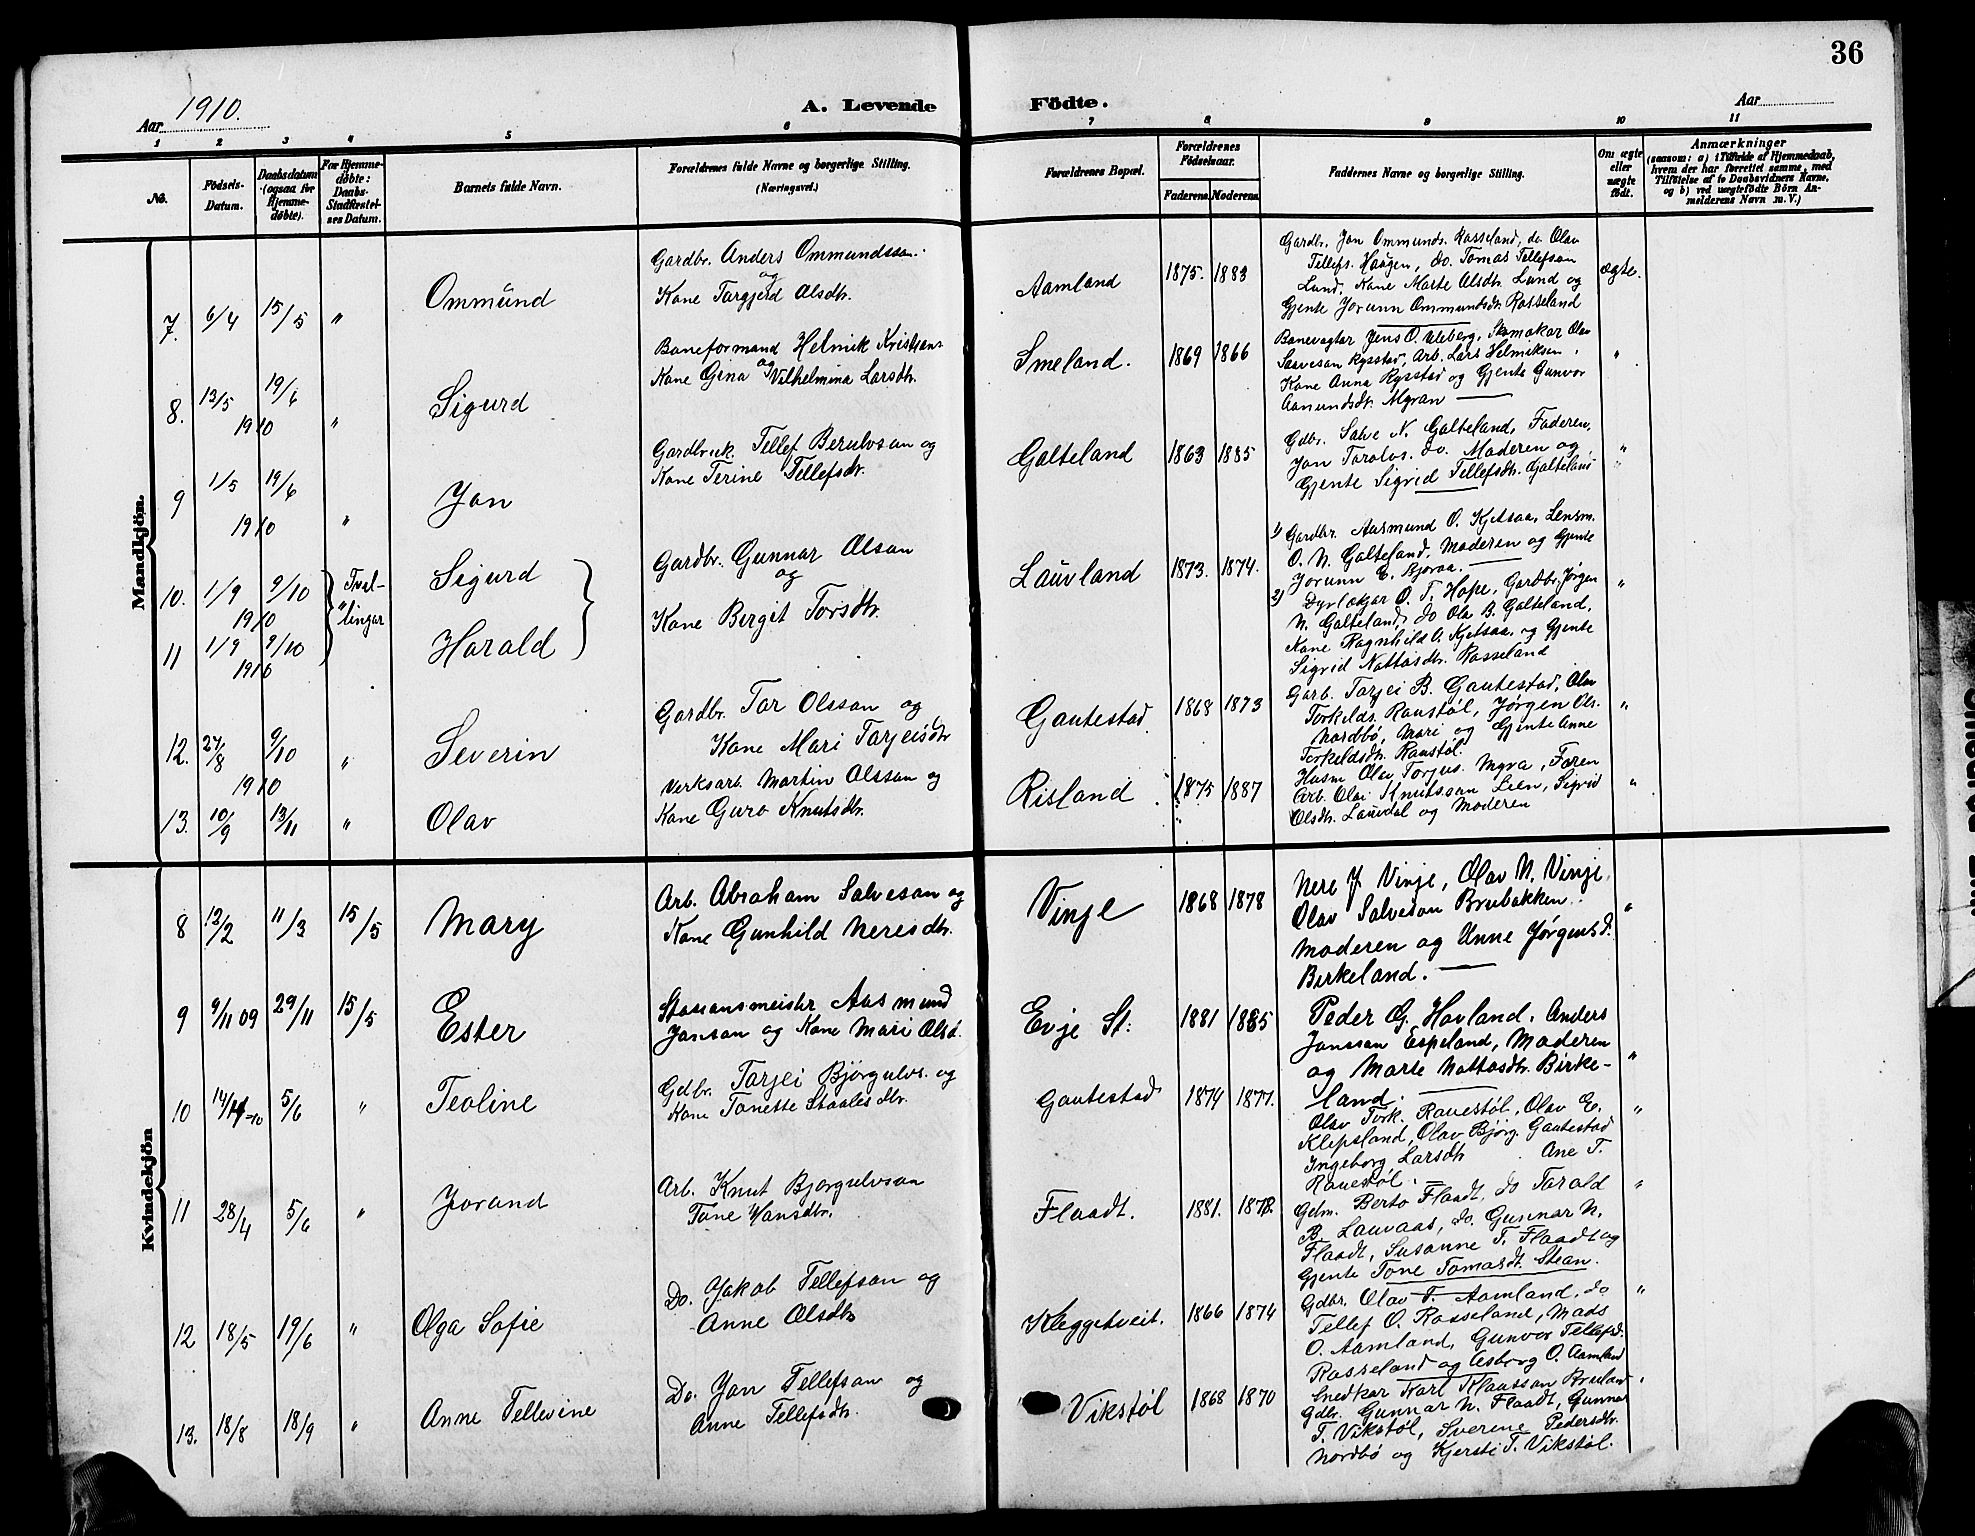 36
Aar 1910.
A. Levende Födte.
Aar
1 2 3 4 5 6 7 8 9 10 11
No.
Födsels-Datum.
Daabsdatum (ogsaa for Hjemmedøbte).
For Hjemmedøbte: Daabs-Stadfæstelses Datum.
Barnets fulde Navn.
Forældrenes fulde Navne og borgerlige Stilling.
(Næringsvei.)
Forældrenes Bopæl.
Forældrenes Födselsaar.
Faderens. Moderens.
Faddernes Navne og borgerlige Stilling.
Om ægte eller uægte födt.
Anmærkninger
(saasom: a) i Tilfælde af Hjemmedaab, hvem der har forrettet samme, med Tilføielse af to Daabsvidners Navne, og b) ved uægtefödte Börn Anmelderens Navn m. V.)
Mandkjön.
7. 6/4 15/5 " Ommund
Gardbr. Anders Ommundsson.
og
Kone Targjerd Olsdtr.
Aamland 1875. 1883
Gardbr. Jon Ommunds. Rosseland, do Olav
Tellefs. Haugen, do. Tomas Tellefson
Lund, Kone Marte Olsdtr. Lund og
Gjente Jorunn Ommundsdtr. Rosseland
ægte.
8. 13/5 19/6 1910 " Sigurd
Baneformand Helmik Kristians.
og
Kone Gina Vilhelmina Larsdtr.
Smeland. 1869 1866
Banevagtar Jens O. Uleberg, Skomakar Olav
Saaveson Rysstad, Arb. Lars Helmiksen,
Kone Anna Rysstad og Gjente Gunvor
Aanundsdtr. Myran
"
9 1/5 19/6 1910 " Jon
Gardbruk. Tellef Berulvson og
Kone Terine Tellefsdtr.
Galteland 1863 1885
Gdbr. Salve N. Galteland, Faderen,
Jon Tarolds. do. Moderen og
Gjente Sigrid Tellefsdtr. Galteland
"
10. 1/9 9/10 1910 Tvillingar Sigurd
11 1/9 9/10 1910 " Harald
Gardbr. Gunnar Olson
og
Kone Bergit Torsdtr.
Lauvland 1873. 1874.
1) Gardbr. Aasmund O. Kjetsaa, Lensm.
O. N. Galteland, Moderen og Gjente
Jorunn E. Bjoraa.
2) Dyrlækjar O. T. Hope, Gardbr. Jørgen
N. Galteland, do Olav B. Galteland,
Kone Ragnhild O. Kjetsaa, og Gjente
Sigrid Nattosdtr. Rosseland
"
12. 27/8 9/10 1910 " Severin
Gardbr. Tor Olsson og
Kone Mari Tarjeisdtr
Gautestad. 1868 1873
Garb. Tarjei B. Gautestad, Olav
Torkilds. Raustøl, Jørgen Ols.
Nordbø, Mari og Gjente Anne
Torkeldsdtr. Raustøl.
"
13. 10/9 13/11 " Olav
Verksarb. Martin Olsson og
Kone Guro Knutsdtr.
Risland 1875 1887
Husm Olav Torjus. Myra, Faren
Arb. Olai Knutsson Lien, Sigrid
Olsdtr. Lauvdal og Moderen
"
Kvindekjön
8 12/2 11/3 15/5 Mary
Arb. Abraham Salveson og
Kone Gunhild Neresdtr.
Vinje 1868 1878
Nere J Vinje, Olav N. Vinje,
Olav Salveson Brubakken.
Moderen og Unne Jørgensd.
Birkeland.
"
9 9/11 09 29/11 15/5 Ester
Stasjonsmeister Aasmund
Jonson og Kone Mari Olsd.
Evje St: 1881 1885
Peder G. Hovland. Anders
Jonsson Espeland, Moderen
og Marte Nattosdtr. Birke-
land.
"
10 5/6 " Teoline
Gdbr. Tarjei Bjørgulvs. og
Kone Tonette Staalesdtr.
Gautestad 1874 1877.
Olav Tork. Rauestøl, Olav E.
Klepsland, Olav Bjørg. Gautestad
Ingeborg Larsdtr Ane T.
Rauestøl.
"
11 28/4 5/6 " Jorand
Arb. Knut Bjørgulvson
Tone Hansdtr.
Flaadt. 1881.
Gdm. Berto Flaadt, do Tarald
B. Lauvaas, do. Gunnar N.
Flaadt, Susanne T. Flaadt og
Gjente Tone Tomasdt. Stean.
"
12 18/5 19/6 " Olga Sofie
Do. Jakob Tellefson og
Anne Olsdtr
Kleggetveit. 1866 1874
Gdbr. Olav T. Aamland, do
Tellef O. Rosseland, Mads
O. Aamland, Gunvor Tellefsd.
Rosseland og Asborg O. Aamland
"
13. 18/8 18/9 " Anne Tellevine
Do. Jon Tellefson og
Anne Tellefsdtr.
Vikstøl 1868 1870
Snedkar Karl Klausson Bruland
Gdbr. Gunnar N. Flaadt, Gunnar
T. Vikstøl, Sverene Pedersdtr.
Nordbø og Kjersti T. Vikstøl.
"